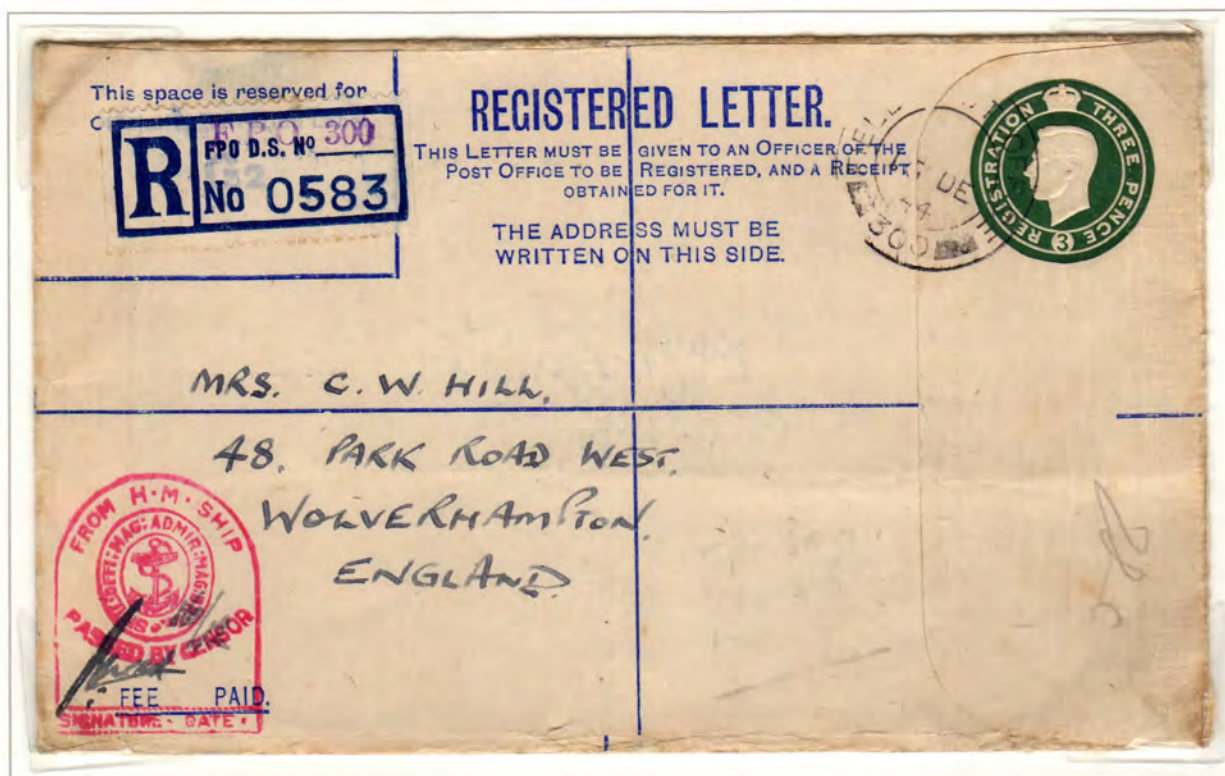 This space is reserved for
F.P.O. 300
R
FPO D.S. Nº
No 0583
REGISTERED LETTER.
THIS LETTER MUST BE GIVEN TO AN OFFICER OF THE
POST OFFICE TO BE REGISTERED, AND A RECEIPT
OBTAINED FOR IT.
THE ADDRESS MUST BE
WRITTEN ON THIS SIDE.
DE
44
300
REGISTRATION THREE PENCE
3
MRS. C. W. HILL,
48. PARK ROAD WEST.
WOLVERHAMPTON.
ENGLAND.
FROM H·M·SHIP
PASSED BY CENSOR
FEE PAID.
SIGNATURE · DATE ·